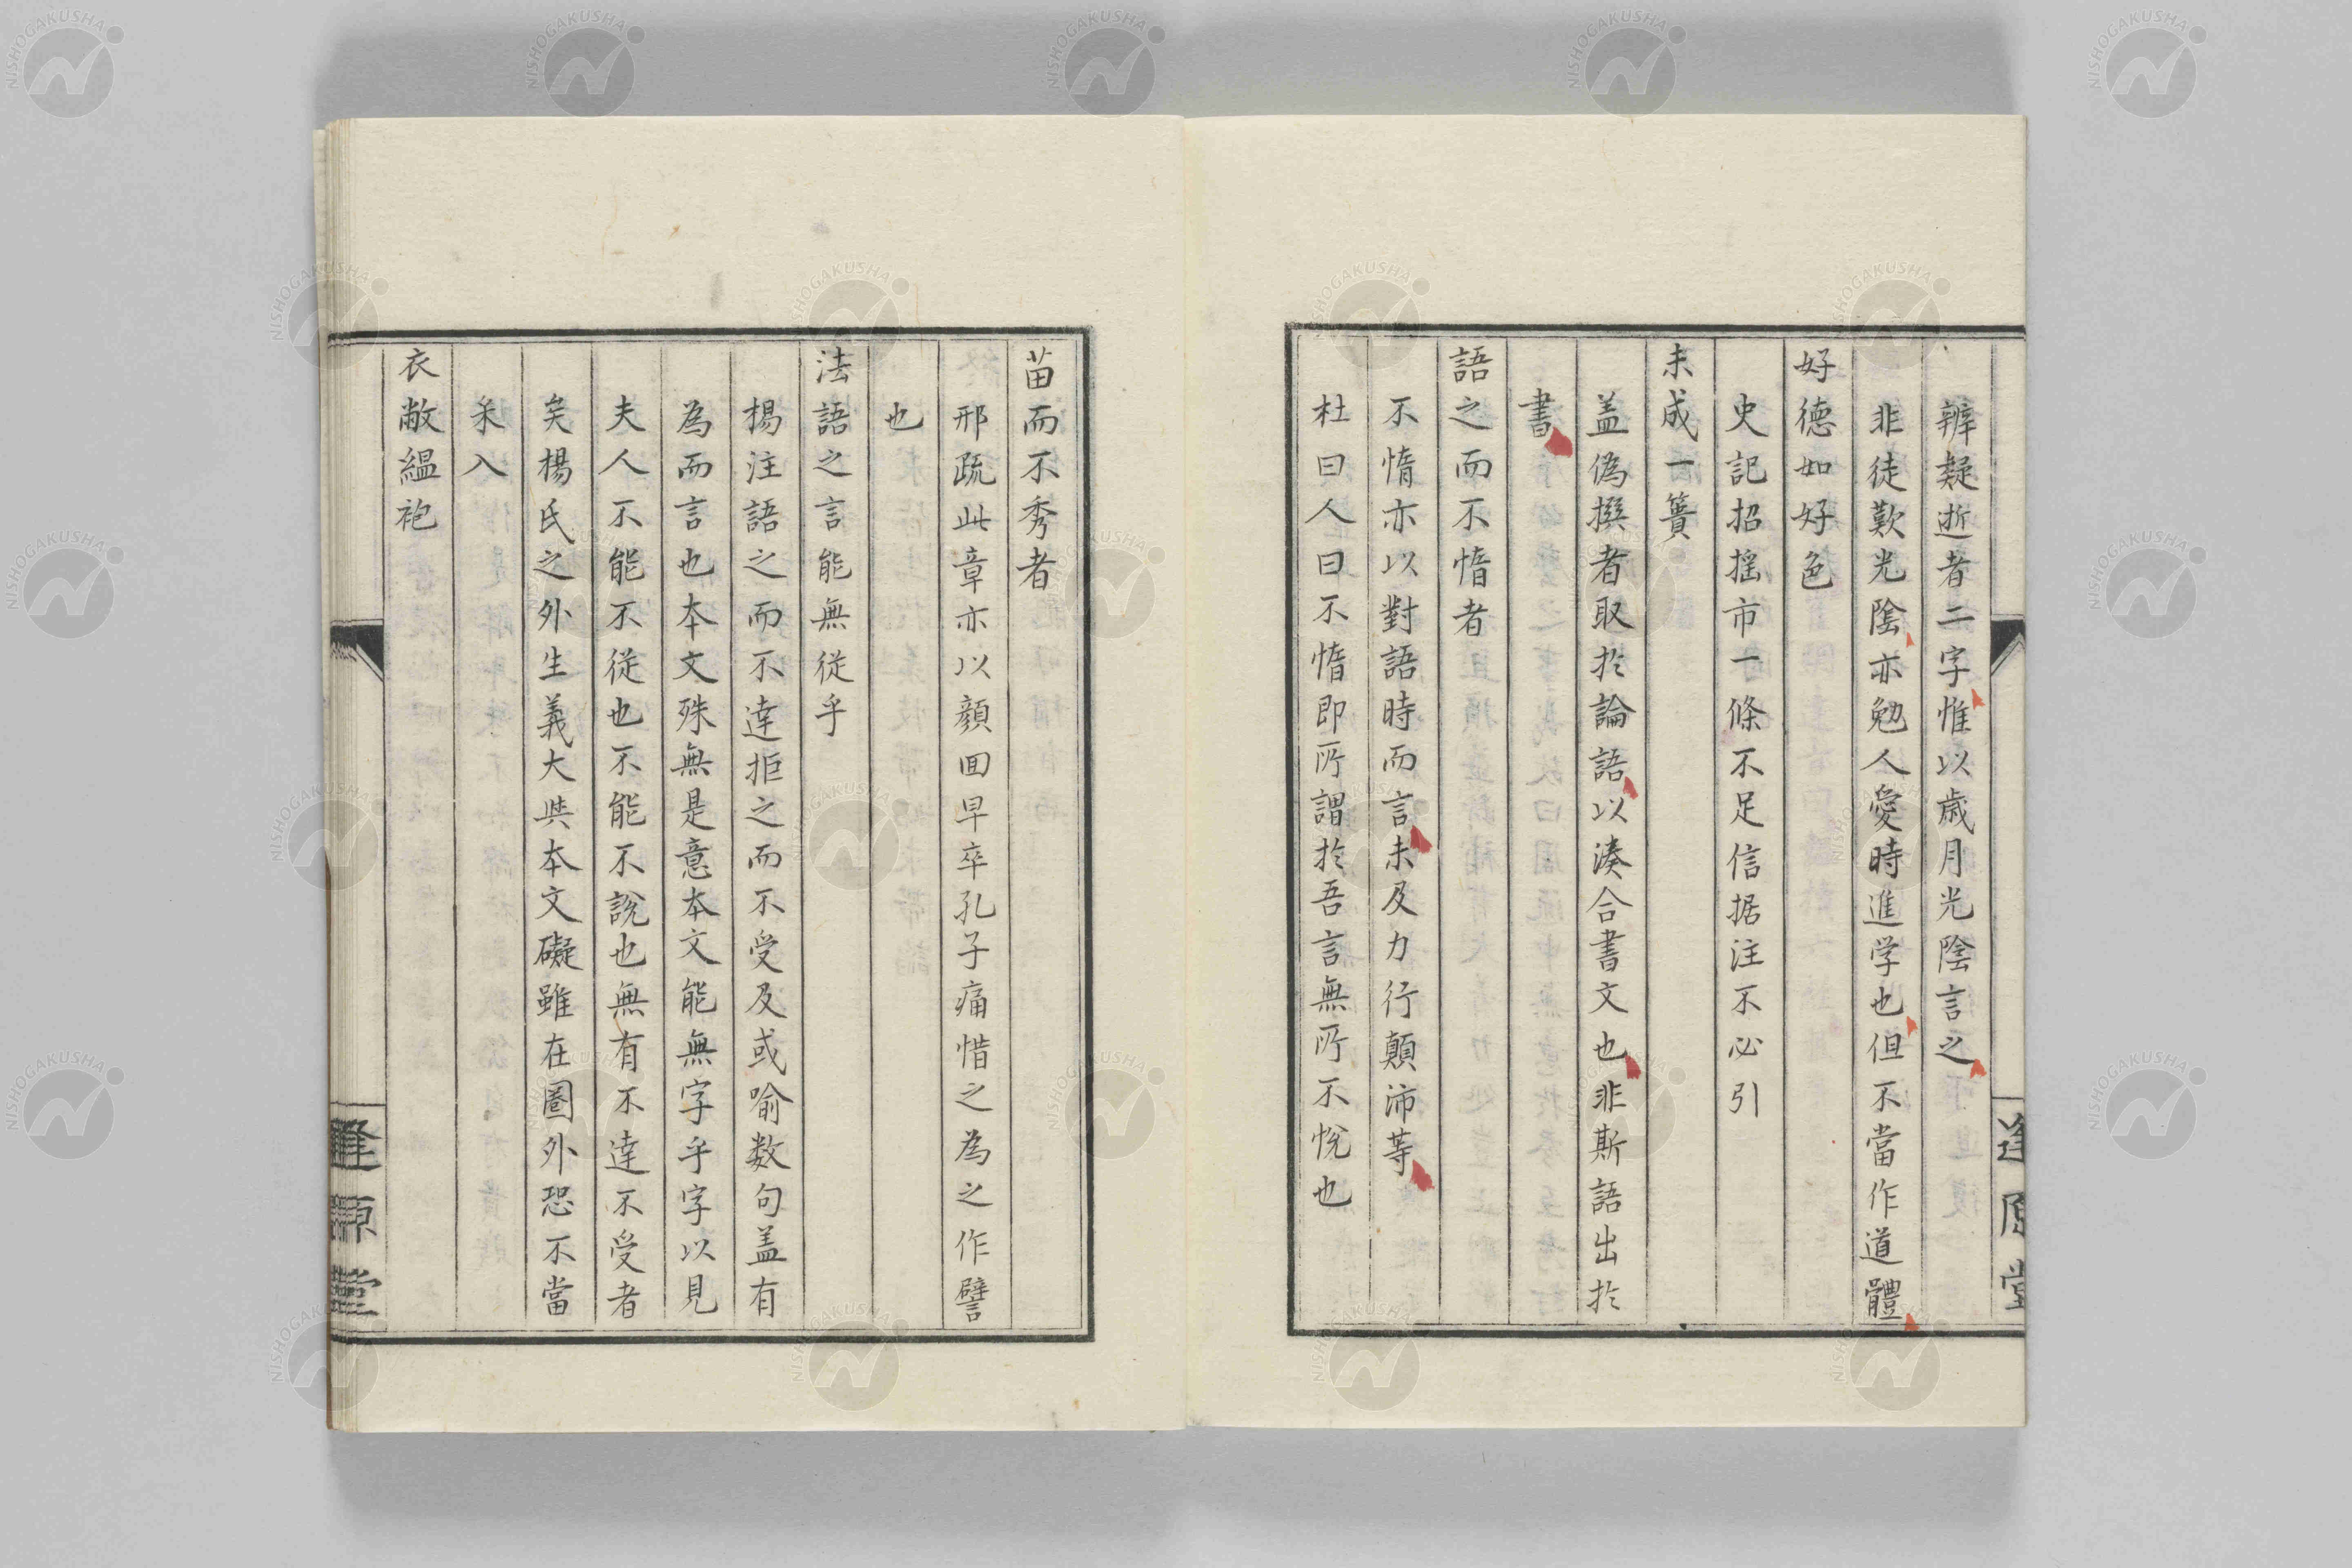 辨疑逝者二字惟以歳月光陰言之
非徒歎光陰亦勉人愛時進学也但不當作道體
好德如好色
史記招搖市一條不足信据注不必引
未成一簣
盖偽撰者取於論語以湊合書文也非斯語出於
書
語之而不惰者
不惰亦以對語時而言未及力行顛沛等
杜曰人曰不惰即所謂於吾言無所不悅也
逢原堂
苗而不秀者
邢疏此章亦以顏回早卒孔子痛惜之為之作譬
也
法語之言能無從乎
楊注語之而不達拒之而不受及或喻数句盖有
為而言也本文殊無是意本文能無字乎字以見
夫人不能不從也不能不說也無有不達不受者
矣楊氏之外生義大與本文礙雖在圏外恐不當
采入
衣敝縕袍
逢原堂
NISHOGAKUSHA